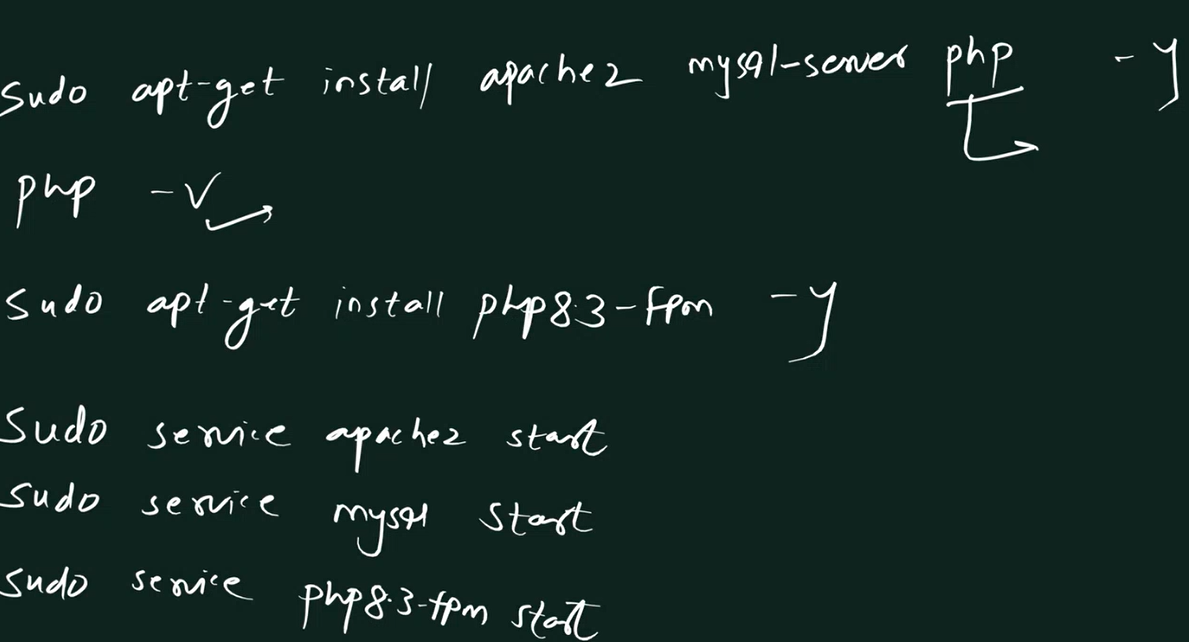 sudo apt-get install apache2 mysql-server php -y
php -v
sudo apt-get install php8.3-fpm -y
sudo service apache2 start
sudo service mysql start
sudo service php8.3-fpm start